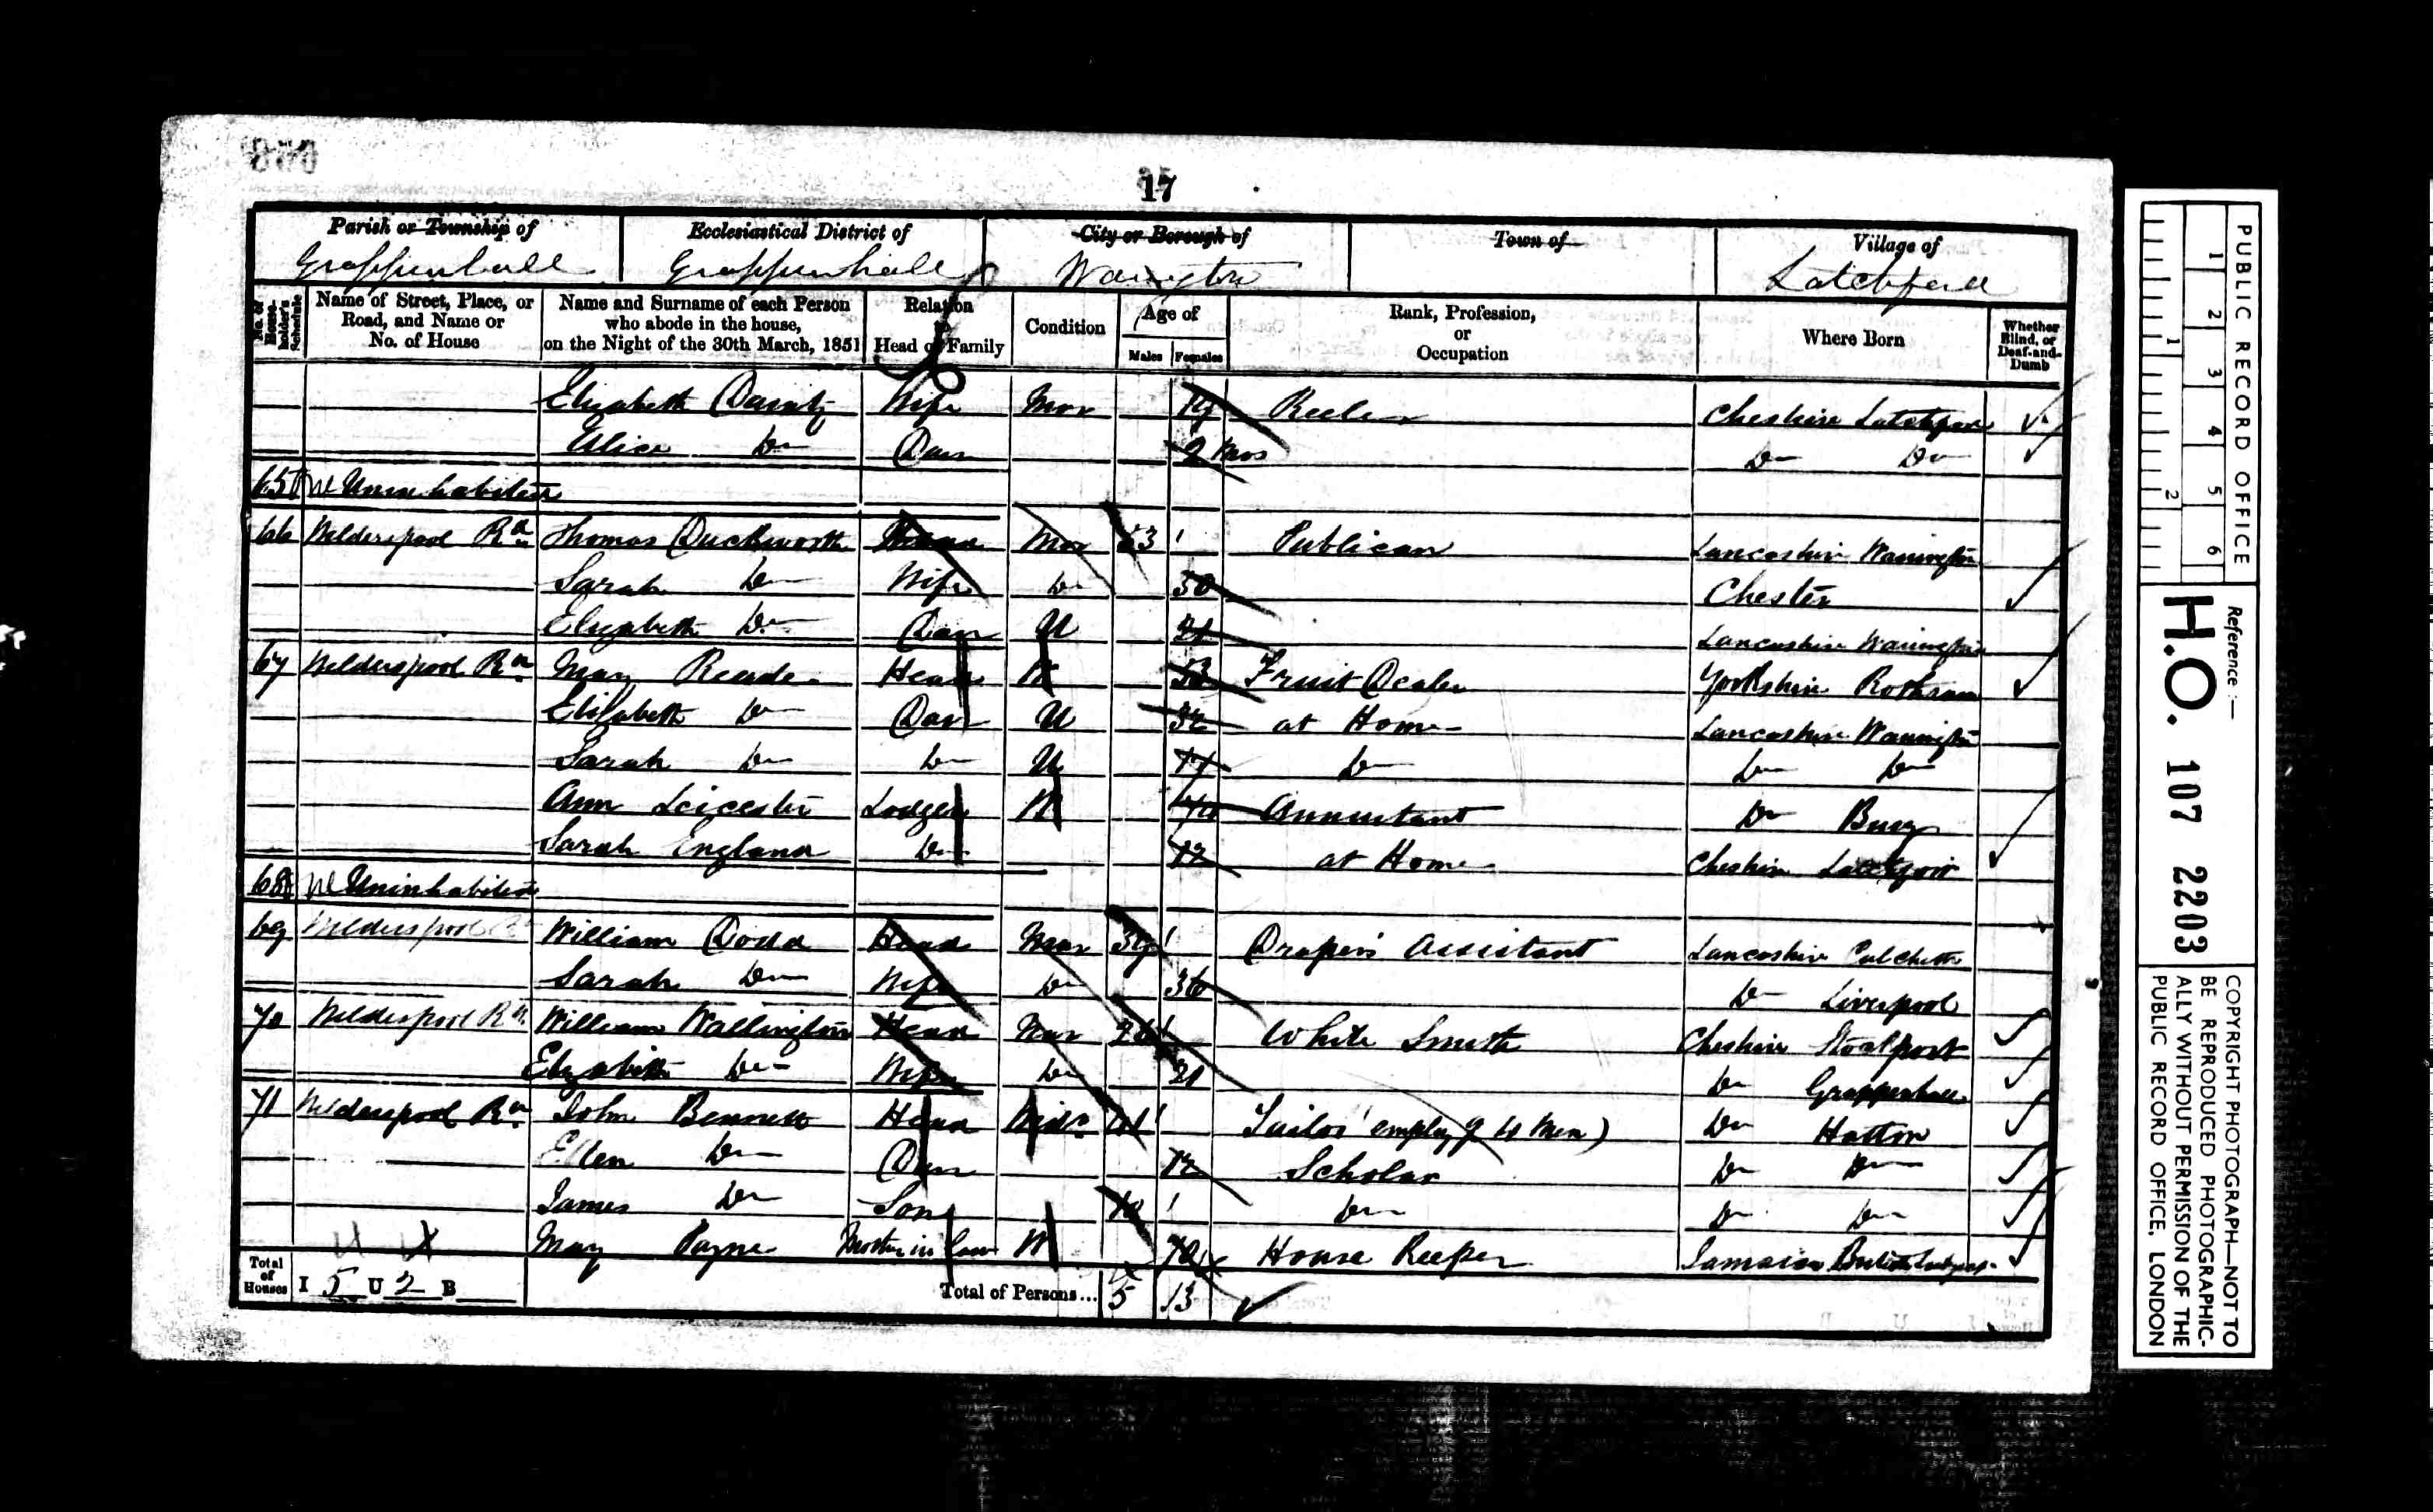 17
Parish or Township of Grappenhall
Ecclesiastical District of Grappenhall
City or Borough of Warrington
Town of
Village of Latchford
No. of House-holder's Schedule
Name of Street, Place, or Road, and Name or No. of House
Name and Surname of each Person who abode in the house, on the Night of the 30th March, 1851
Relation to Head of Family
Condition
Age of Males Females
Rank, Profession, or Occupation
Where Born
Whether Blind, or Deaf-and-Dumb
Elizabeth Wife Mar 19 Reeler Cheshire Latchford
Alice Do Daur 2 Mos Do Do
65 Uninhabited
66 Wilderspool Rd Thomas Duckworth Head Mar 53 Publican Lancashire Warrington
Sarah Do Wife Do 50 Chester
Elizabeth Do Daur U 21 Lancashire Warrington
67 Wilderspool Rd Mary Reade Head W 53 Fruit Dealer Yorkshire
Elizabeth Do Daur U 32 at Home Lancashire Warrington
Sarah Do Do U 17 Do Do Do
Ann Leicester Lodger W 70 Annuitant Do Bury
Sarah England Do 12 at Home Cheshire
68 Uninhabited
69 Wilderspool Rd William Dodd Head Mar 39 Drapers Assistant Lancashire Culcheth
Sarah Do Wife Do 36 Do Liverpool
70 Wilderspool Rd William Wallington Head Mar 26 White Smith Cheshire Stockport
Elizabeth Do Wife Do 21 Do Grappenhall
71 Wilderspool Rd John Bennett Head Widr 41 Tailor (employg 4 Men) Do Hatton
Ellen Do Daur 12 Scholar Do Do
James Do Son 10 Do Do Do
Mary Payne Mother in law W 70 House Keeper Jamaica British Subject
Total of Houses I 5 U 2 B
Total of Persons... 5 13
PUBLIC RECORD OFFICE
1 2 3 4 5 6
1 2
Reference :—
H.O. 107 2203
COPYRIGHT PHOTOGRAPH—NOT TO BE REPRODUCED PHOTOGRAPHICALLY WITHOUT PERMISSION OF THE PUBLIC RECORD OFFICE, LONDON